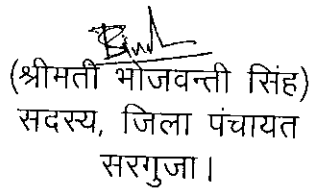 (श्रीमती भोजवन्ती सिंह)
सदस्य, जिला पंचायत
सरगुजा।